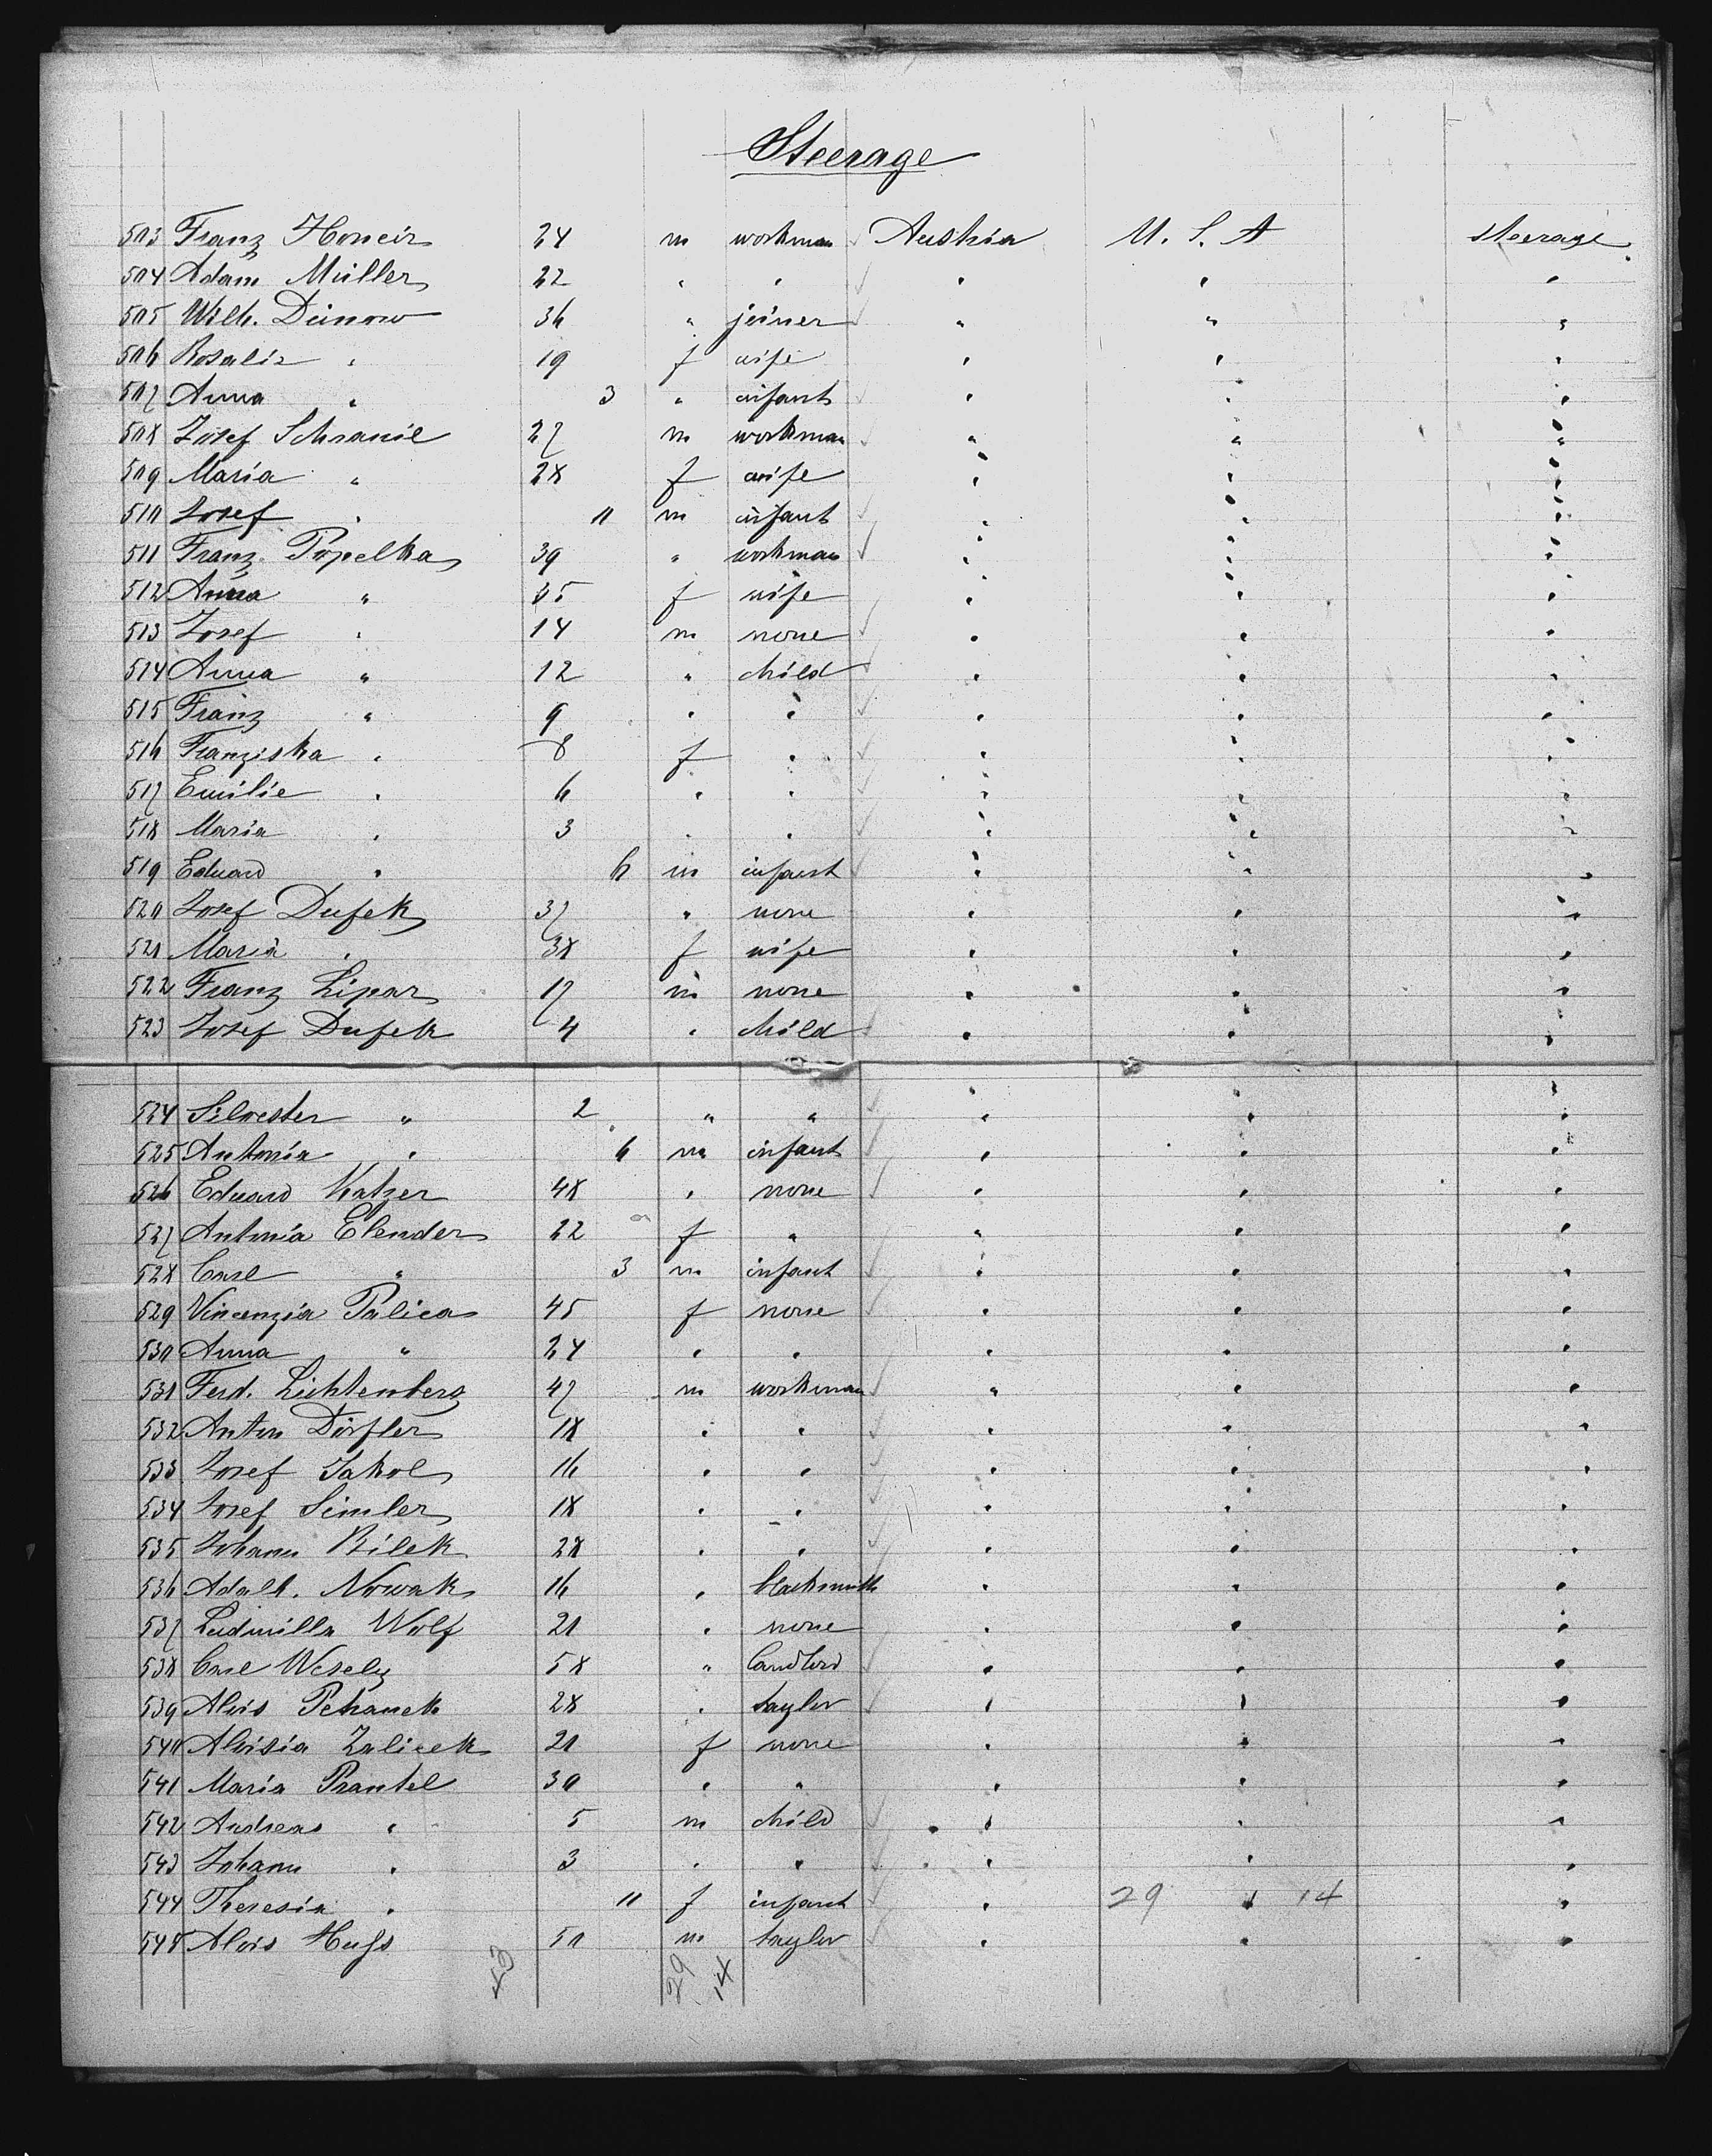 Steerage
503 Franz Honcir 24 m workman Austria U. S. A steerage
504 Adam Müller 22 " " " " "
505 Wilh. Dünow 36 " joiner " " "
506 Rosalie " 19 f wife " " "
507 Anna " 3 " infant " " "
508 Josef Schranil 27 m workman " " "
509 Maria " 28 f wife " " "
510 Josef " 11 m infant " " "
511 Franz Popelka 39 " workman " " "
512 Anna " 35 f wife " " "
513 Josef " 14 m none " " "
514 Anna " 12 " child " " "
515 Franz " 9 " " " " "
516 Franziska " 8 f " " " "
517 Emilie " 6 " " " " "
518 Maria " 3 " " " " "
519 Eduard " 6 m infant " " "
520 Josef Dufek 37 " none " " "
521 Maria " 38 f wife " " "
522 Franz Lipar 17 m none " " "
523 Josef Dufek 4 " child " " "
524 Silvester " 2 " " " " "
525 Antonia " 6 m infant " " "
526 Eduard Katzer 48 " none " " "
527 Antonia Elender 22 f " " " "
528 Carl " 3 m infant " " "
529 Vincenzia Palica 45 f none " " "
530 Anna " 24 " " " " "
531 Ferd. Lichtenberg 47 m workman " " "
532 Anton Dörfler 18 " " " " "
533 Josef Jakol 16 " " " " "
534 Josef Simler 18 " " " " "
535 Johann Bilek 28 " " " " "
536 Adalb. Nowak 16 " blacksmith " " "
537 Ludmilla Wolf 21 " none " " "
538 Carl Wesely 58 " landlord " " "
539 Alois Pechanek 28 " taylor " " "
540 Aloisia Zalicek 21 f none " " "
541 Maria Prantel 30 " " " " "
542 Andreas " 5 m child " " "
543 Johann " 3 " " " " "
544 Theresia " 11 f infant " 29 " 14 "
545 Alois Hufs 50 m taylor " " "
43 29 14